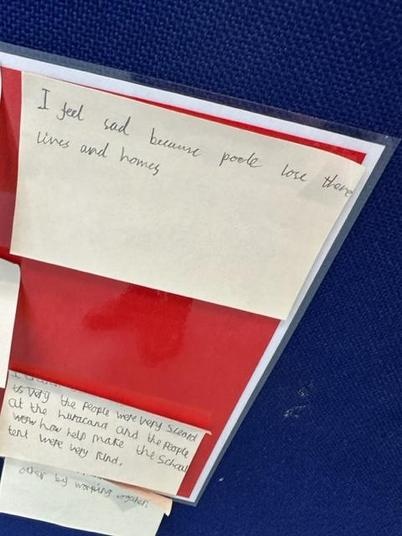 I feel sad because poole lose there
lives and homes
to very the people were very sceard
at the huracand and the people
wow how help make the School
tent were very kind.
other by working